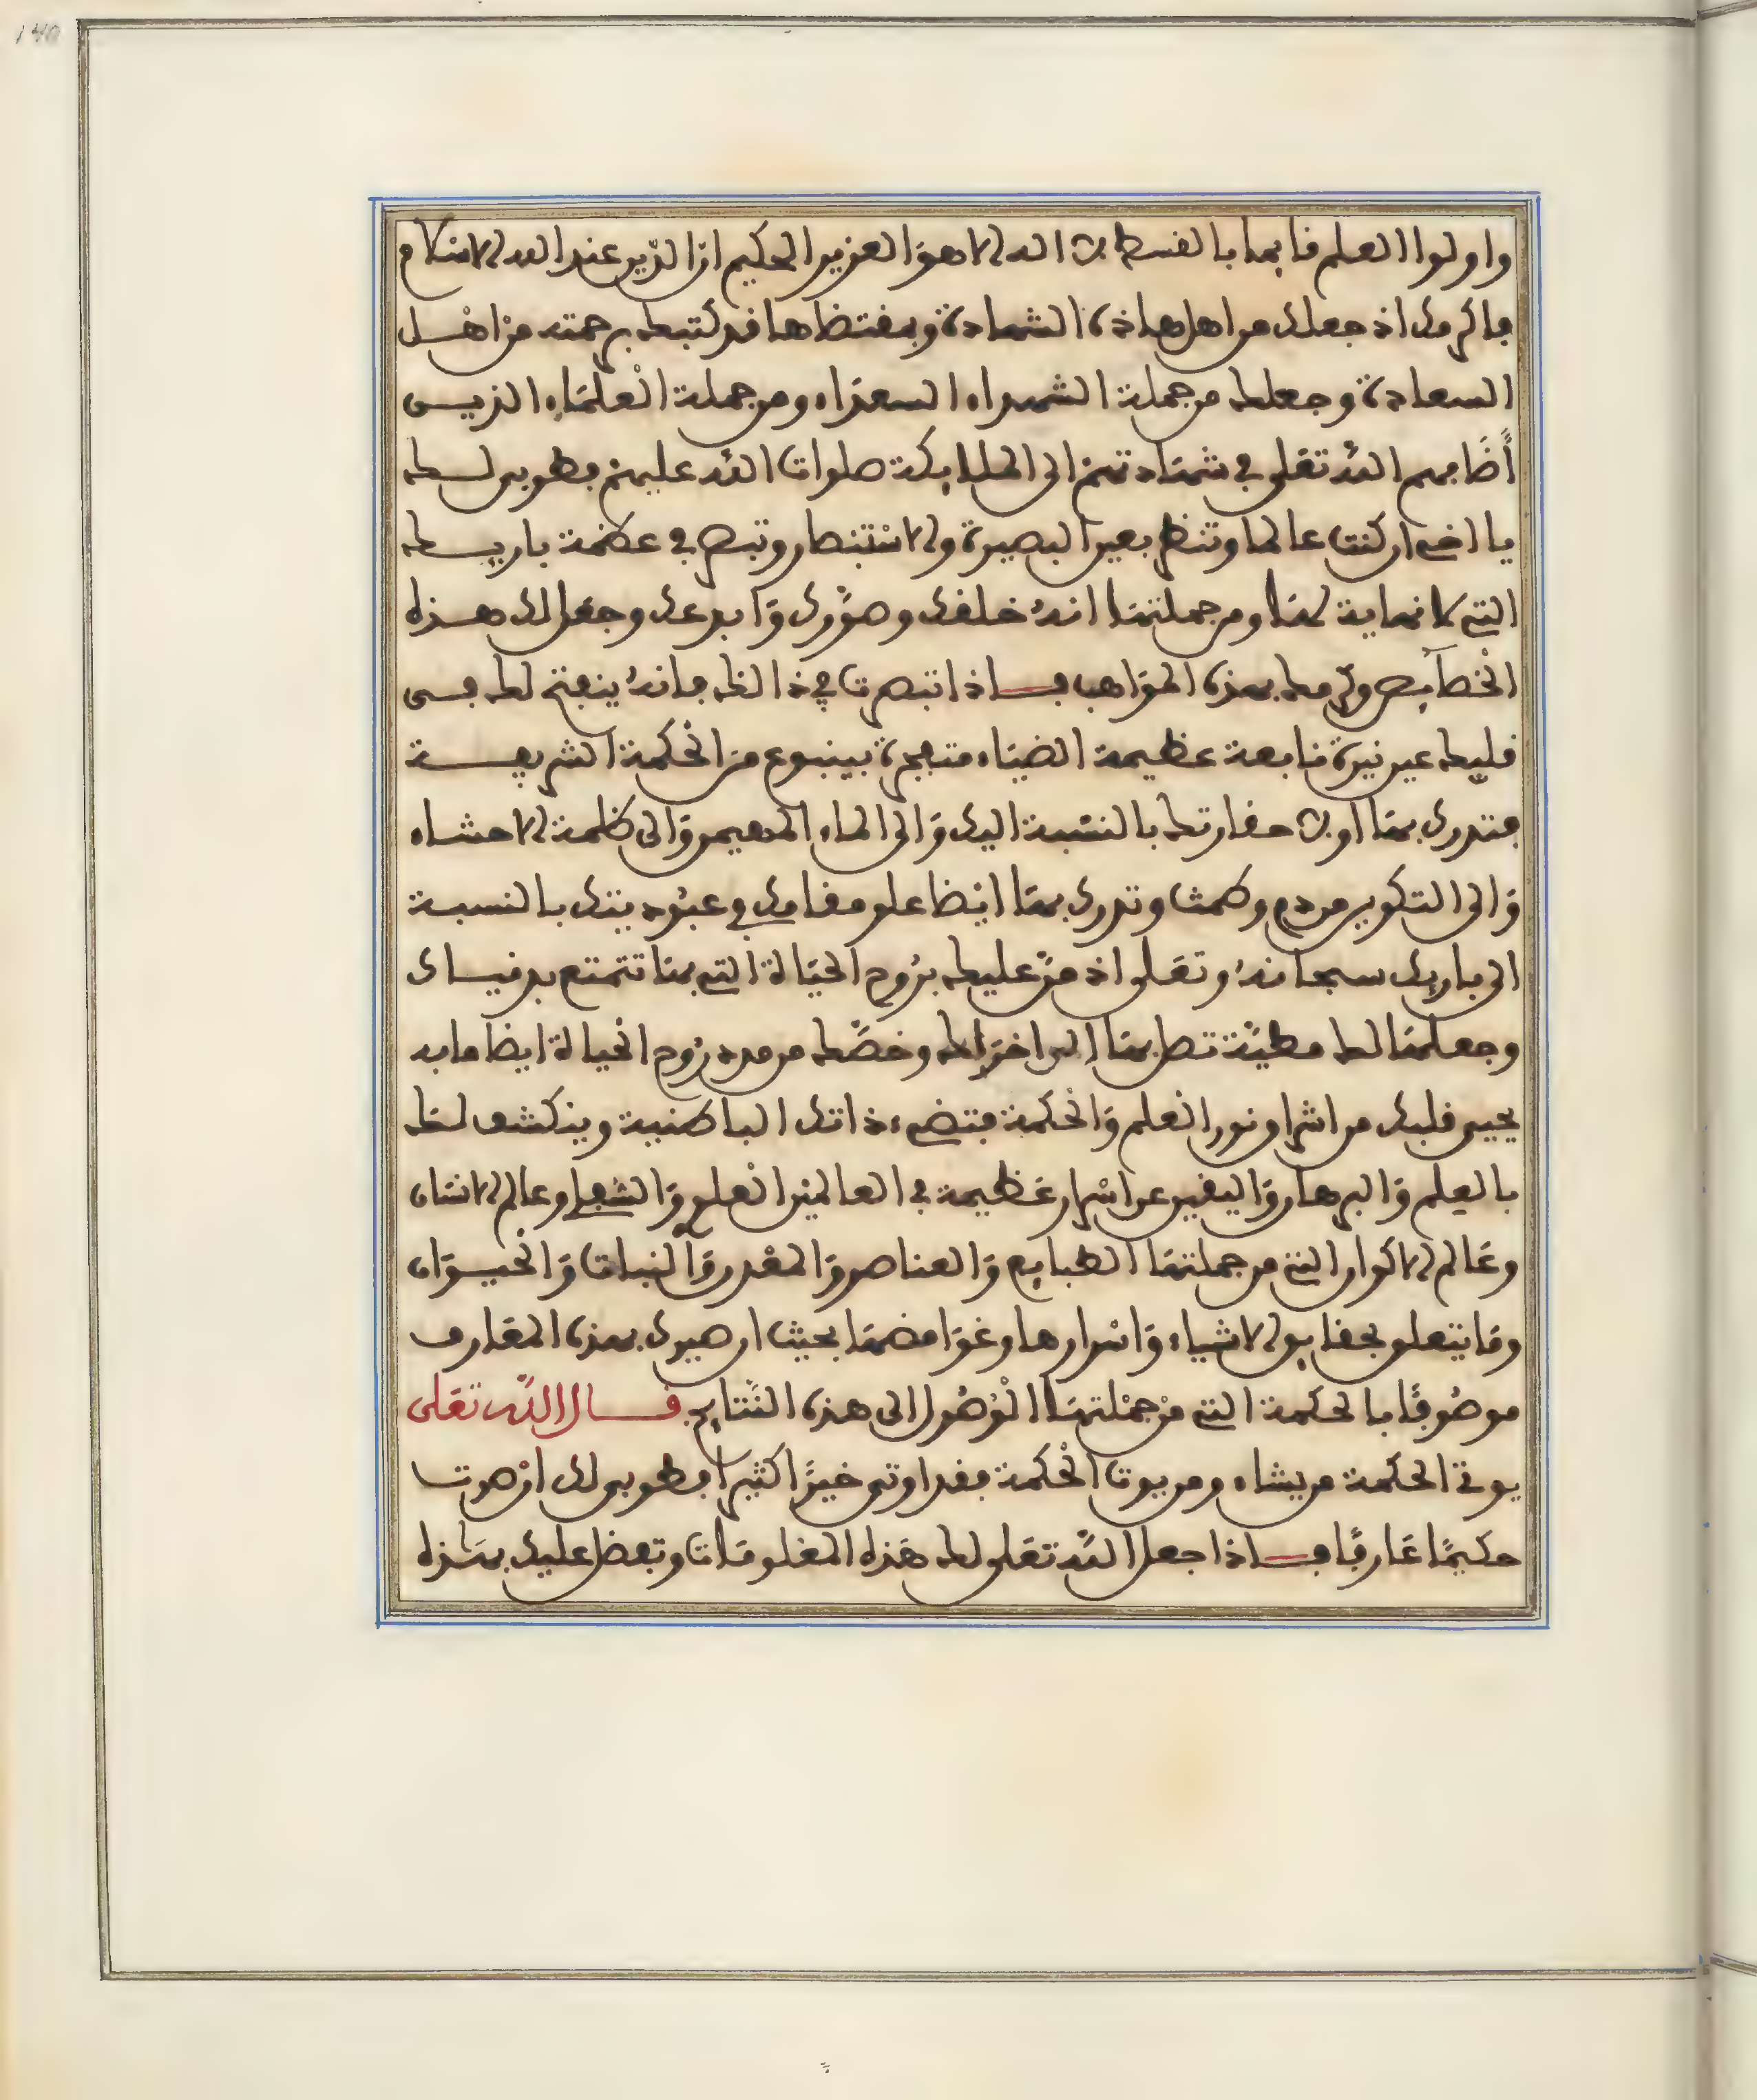 واولوا العلم قايما بالقسط لا اله الا هو العزيز الحكيم ان الدين عند الله الاسلام
فاكرمك اذ جعلك من اهل هاذه الشهادة وبمقتضاها قد كتبك برحمته من اهل
السعادة وجعلك من جملة الشهداء السعداء ومن جملة العلماء الذين
أضافهم الله تعلى في شهادتهم الى الملايكة صلوات الله عليهم فطوبى لك
يا اخي ان كنت عالما وتنظر بعين البصيرة والاستبصار وتبصر في عظمة باريك
التي لا نهاية لها ومن جملتها انه خلقك وصورك وابدعك وجعل لك هذه
الخصايص وكرمك بهذه المواهب فاذا تبصرت في ذالك فانه ينفتح لك في
قلبك عين نيرة نابعة عظيمة الضياء متفجرة بينبوع من الحكمة الشريفة
فتدرك بها اولا حقارتك بالنسبة اليك والى الماء المهين والى ظلمة الاحشاء
والى التكوين من دم وطمث وتدرك بها ايضا علو مقامك في عبوديتك بالنسبة
الى باريك سبحانه وتعلى اذ من عليك بروح الحياة التي بها تتمتع بدنياك
وجعلها لك مطية تصل بها الى اخراك وخصك من مدد روح الحياة ايضا ما به
يحيى قلبك من اشراق نور العلم والحكمة فتضيء ذاتك الباطنية وينكشف لك
بالعلم والبرهان واليقين عن اسرار عظيمة في العالمين العلوي والسفلي وعالم الانسان
وعالم الاكوار التي من جملتها الطبايع والعناصر والمعدن والنبات والحيوان
وما يتعلق بحقايق الاشياء واسرارها وغوامضها بحيث ان صيرك بهذه المعارف
موصوفا بالحكمة التي من جملتها الوصول الى هذه النتايج قال الله تعلى
يوتي الحكمة من يشاء ومن يوت الحكمة فقد اوتي خيرا كثيرا فطوبى لك ان صرت
حكيما عارفا فاذا جعل الله تعلى لك هذه المعلومات وتفضل عليك بهذه